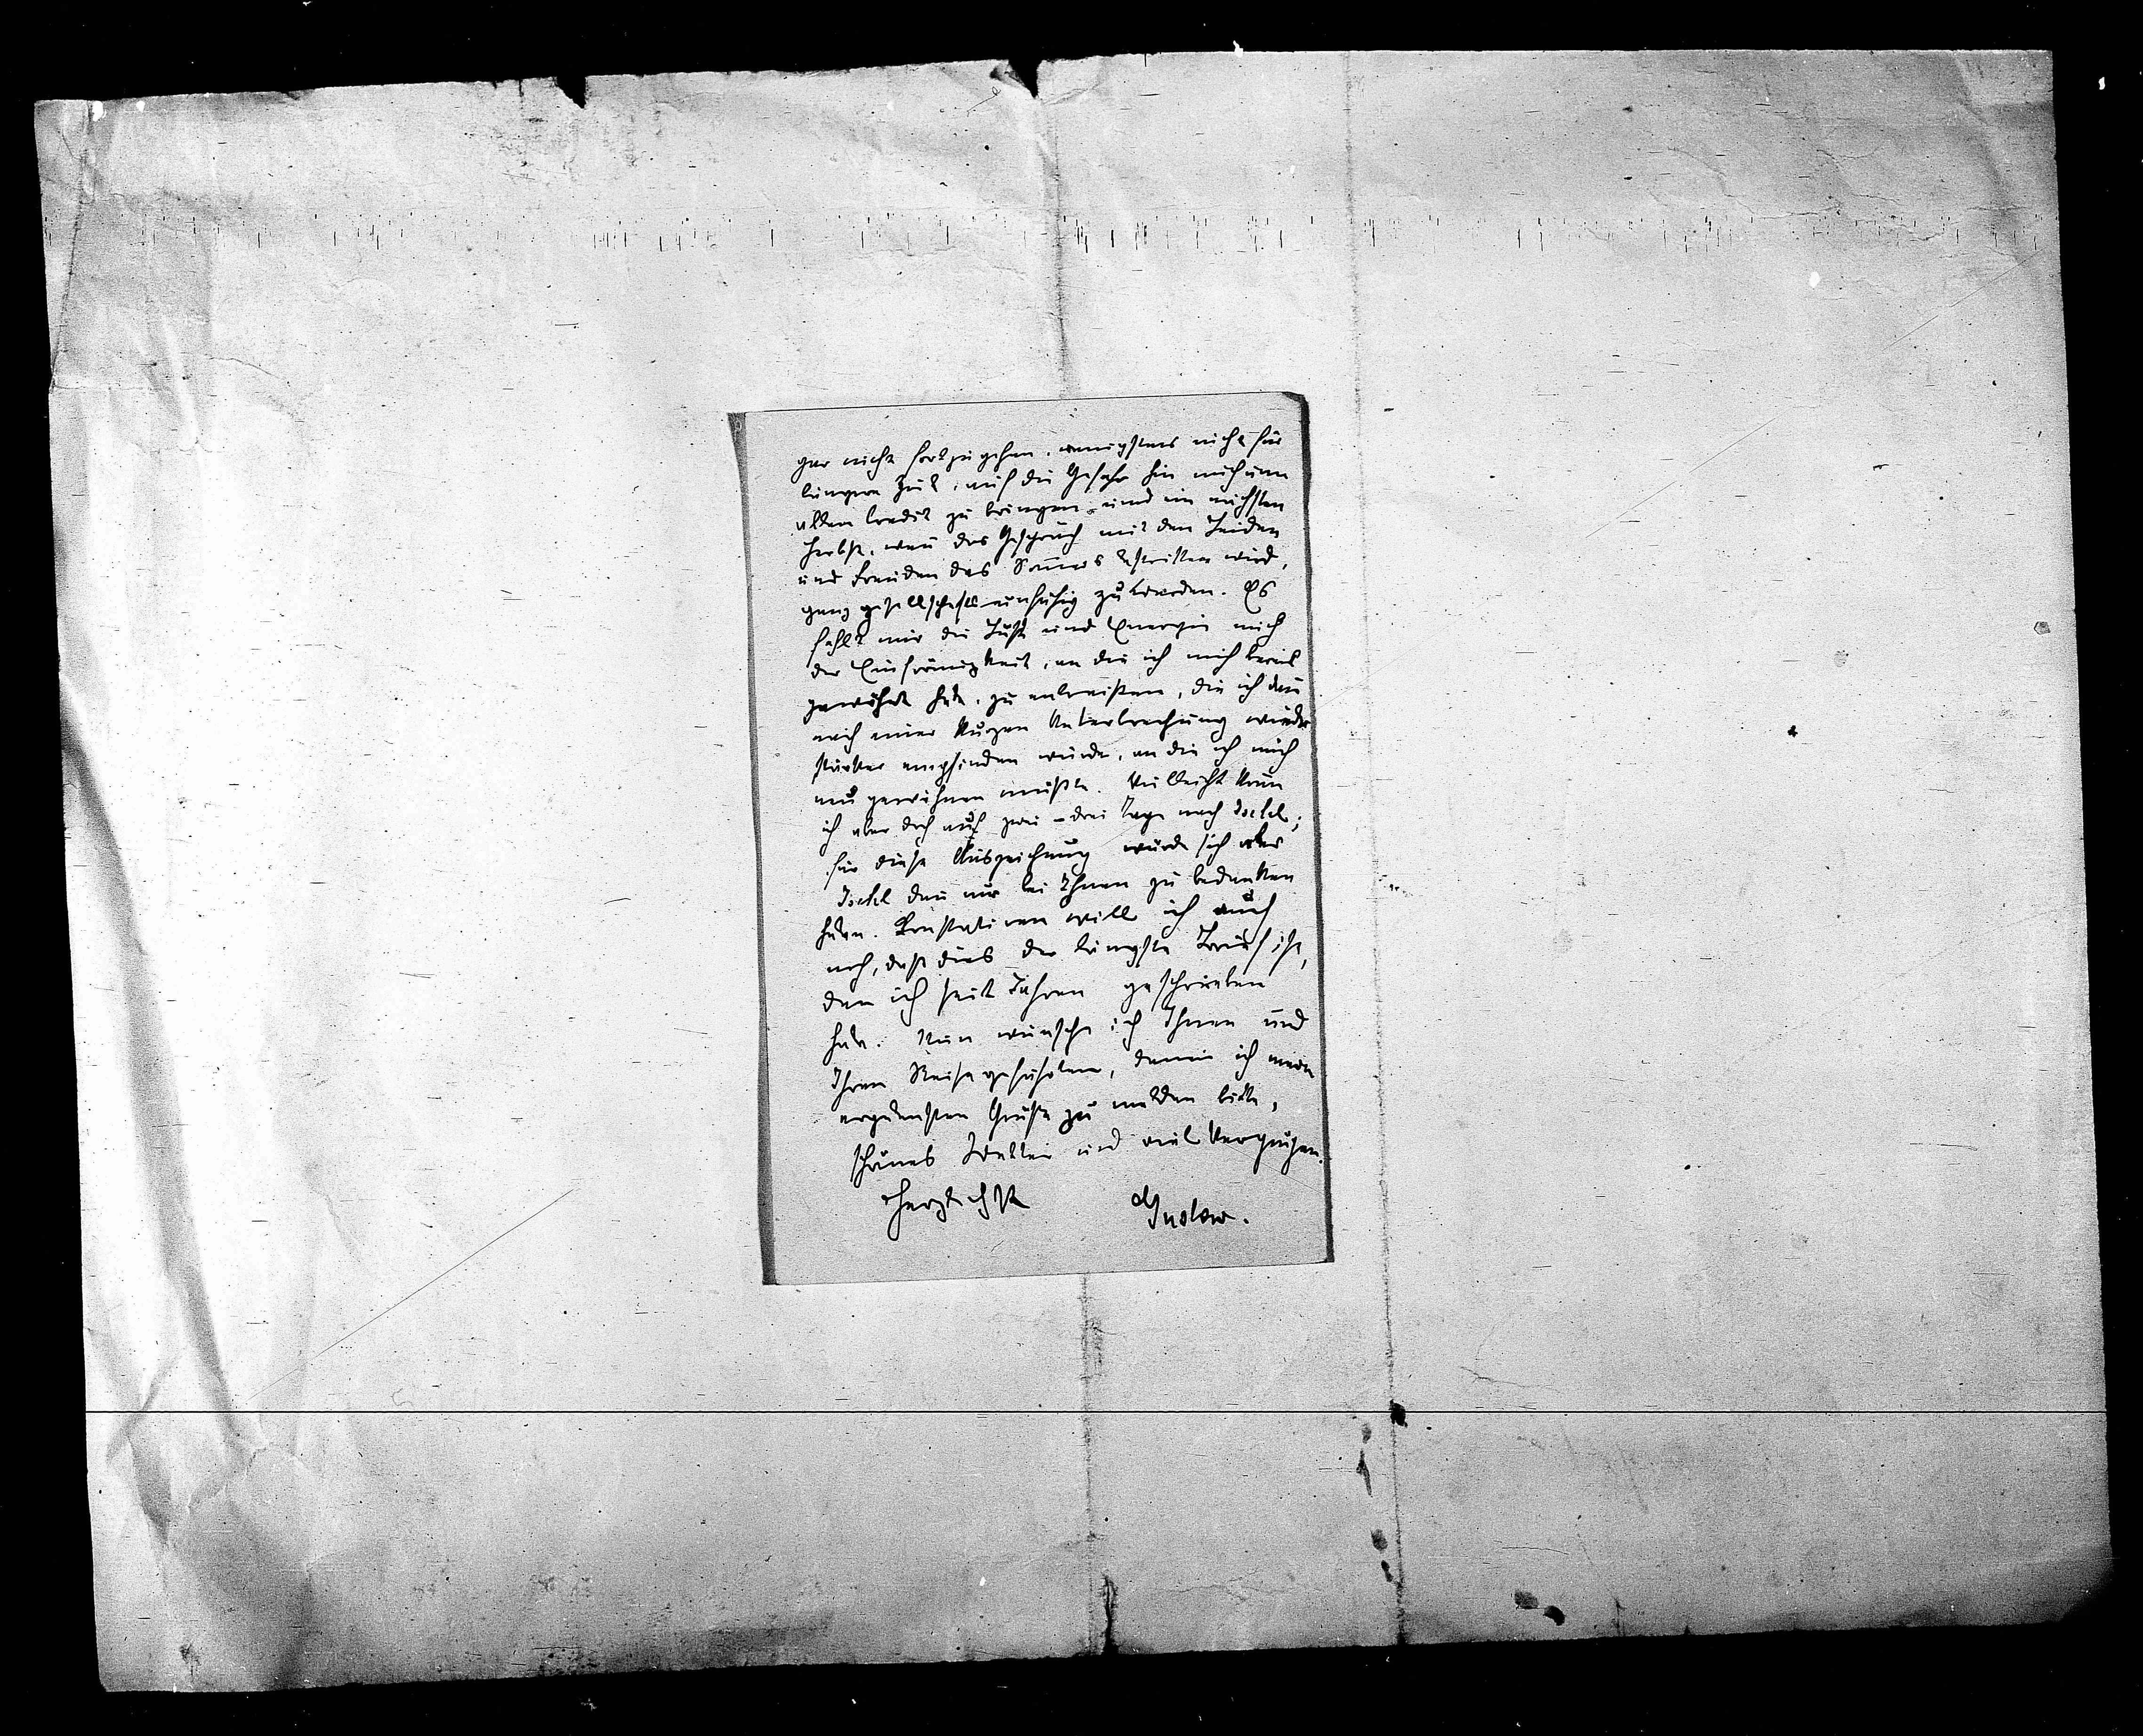 gar nicht fortzugehen, wenigstens nicht für
längere Zeit, auf die Gefahr hin mich um
allen Credit zu bringen und im nächsten
Herbst, wenn das Gespräch mit den Leiden
und Freuden des Som̅ers bestritten wird,
ganz gesellschaftsunfähig zu werden. Es
fehlt mir die Lust und Energie mich
der Einförmigkeit, an die ich mich bereits
gewöhnt habe, zu entreißen, die ich dan̅
nach einer kurzen Unterbrechung wieder
stärker empfinden würde, an die ich mich
neu gewöhnen müßte. Vielleicht kom̅
ich aber doch auf zwei–drei Tage nach Ischl;
für diese Auszeichnung würde sich aber
Ischl dan̅ nur bei Ihnen zu bedanken
haben. Konstatiren will ich auch
noch, daß dies der längste Brief ist,
den ich seit Jahren geschrieben
habe. Nun wünsche ich Ihnen und
Ihren Reisegefährten, denen ich meine
ergebensten Grüße zu melden bitte,
schönes Wetter und viel Vergnügen.
Herzlichst Gustav.